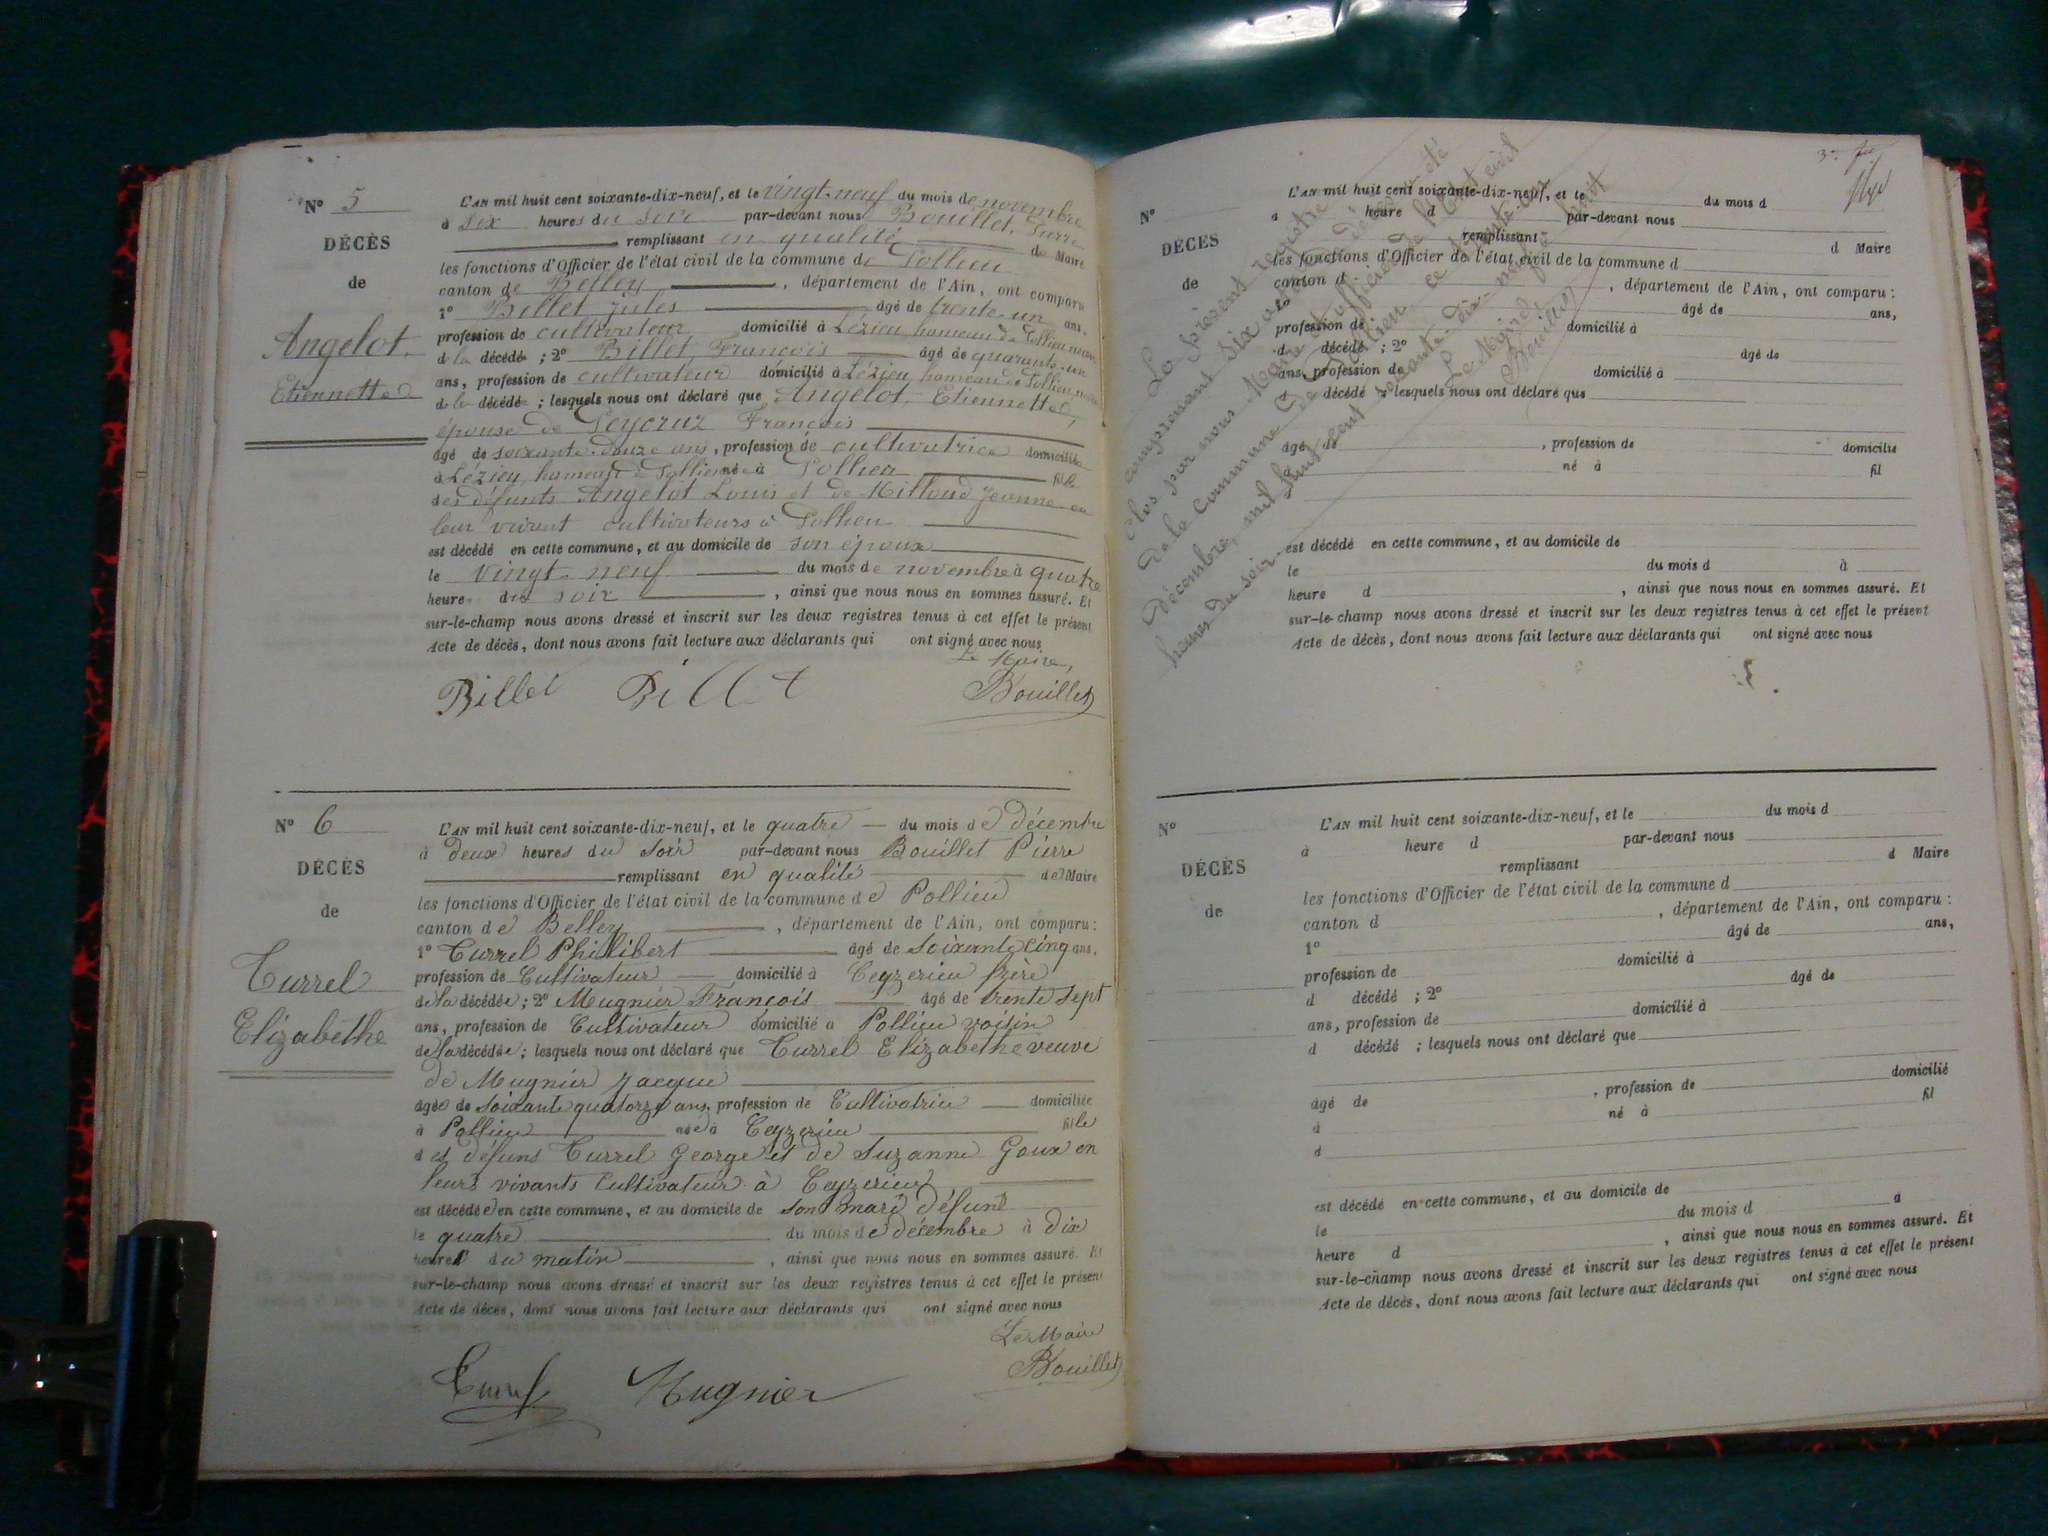 N° 5
DÉCÈS
de
Angelot
Etiennette
L'AN mil huit cent soixante-dix-neuf, et le vingt-neuf du mois de novembre
à six heures du soir par-devant nous Bouillet Pierre
remplissant en qualité de Maire
les fonctions d'Officier de l'état civil de la commune de Pollieu
canton de Belley, département de l'Ain, ont comparu
1° Billet Jules âgé de trente-un ans,
profession de cultivateur domicilié à Lézieu, hameau de Pollieu neveu
de la décédé ; 2° Billet François âgé de quarante-un
ans, profession de cultivateur domicilié à Lézieu, hameau de Pollieu, neveu
de la décédé ; lesquels nous ont déclaré que Angelot Etiennette,
épouse de Peycruz François
âgé de soixante-douze ans, profession de cultivatrice domicilié
à Lézieu, hameau de Pollieu né à Pollieu fille
des défunts Angelot Louis et de Milloud Jeanne en
leur vivant cultivateurs à Pollieu
est décédé en cette commune, et au domicile de son époux
le vingt-neuf du mois de novembre à quatre
heure du soir, ainsi que nous nous en sommes assuré. Et
sur-le-champ nous avons dressé et inscrit sur les deux registres tenus à cet effet le présent
Acte de décès, dont nous avons fait lecture aux déclarants qui ont signé avec nous
Le Maire,
Billet Billet Bouillet
N° 6
DÉCÈS
de
Turrel
Elizabethe
L'AN mil huit cent soixante-dix-neuf, et le quatre du mois de décembre
à deux heures du soir par-devant nous Bouillet Pierre
remplissant en qualité de Maire
les fonctions d'Officier de l'état civil de la commune de Pollieu
canton de Belley, département de l'Ain, ont comparu :
1° Turrel Philibert âgé de soixante cinq ans,
profession de Cultivateur domicilié à Ceyzerieu frère
de la décédée ; 2° Mugnier François âgé de trente sept
ans, profession de Cultivateur domicilié à Pollieu voisin
de la décédée ; lesquels nous ont déclaré que Turrel Elizabethe veuve
de Mugnier Jacque
âgée de soixante quatorze ans, profession de Cultivatrice domiciliée
à Pollieu née à Ceyzerieu fille
des défuns Turrel George et de Suzanne Goux en
leurs vivants Cultivateur à Ceyzerieu
est décédée en cette commune, et au domicile de son mari défunt
le quatre du mois de décembre à dix
heures du matin, ainsi que nous nous en sommes assuré. Et
sur-le-champ nous avons dressé et inscrit sur les deux registres tenus à cet effet le présent
Acte de décès, dont nous avons fait lecture aux déclarants qui ont signé avec nous
Le Maire
Turrel Mugnier Bouillet
N°
DÉCÈS
de
L'AN mil huit cent soixante-dix-neuf, et le du mois d
à heure d par-devant nous
remplissant d Maire
les fonctions d'Officier de l'état civil de la commune d
canton d, département de l'Ain, ont comparu :
1° âgé de ans,
profession de domicilié à
d décédé ; 2° âgé de
ans, profession de domicilié à
d décédé ; lesquels nous ont déclaré que
âgé de, profession de domicilié
à né à fil
d
est décédé en cette commune, et au domicile de
le du mois d à
heure d, ainsi que nous nous en sommes assuré. Et
sur-le-champ nous avons dressé et inscrit sur les deux registres tenus à cet effet le présent
Acte de décès, dont nous avons fait lecture aux déclarants qui ont signé avec nous
Le présent registre
comprenant six actes de décès a été
clos par nous Maire et officier de l'Etat civil
de la commune de Pollieu ce trente-un
décembre, mil huit cent soixante-dix-neuf à
heures du soir
Le Maire
Bouillet
N°
DÉCÈS
de
L'AN mil huit cent soixante-dix-neuf, et le du mois d
à heure d par-devant nous
remplissant d Maire
les fonctions d'Officier de l'état civil de la commune d
canton d, département de l'Ain, ont comparu :
1° âgé de ans,
profession de domicilié à
d décédé ; 2° âgé de
ans, profession de domicilié à
d décédé ; lesquels nous ont déclaré que
âgé de, profession de domicilié
à né à fil
d
est décédé en cette commune, et au domicile de
le du mois d à
heure d, ainsi que nous nous en sommes assuré. Et
sur-le-champ nous avons dressé et inscrit sur les deux registres tenus à cet effet le présent
Acte de décès, dont nous avons fait lecture aux déclarants qui ont signé avec nous